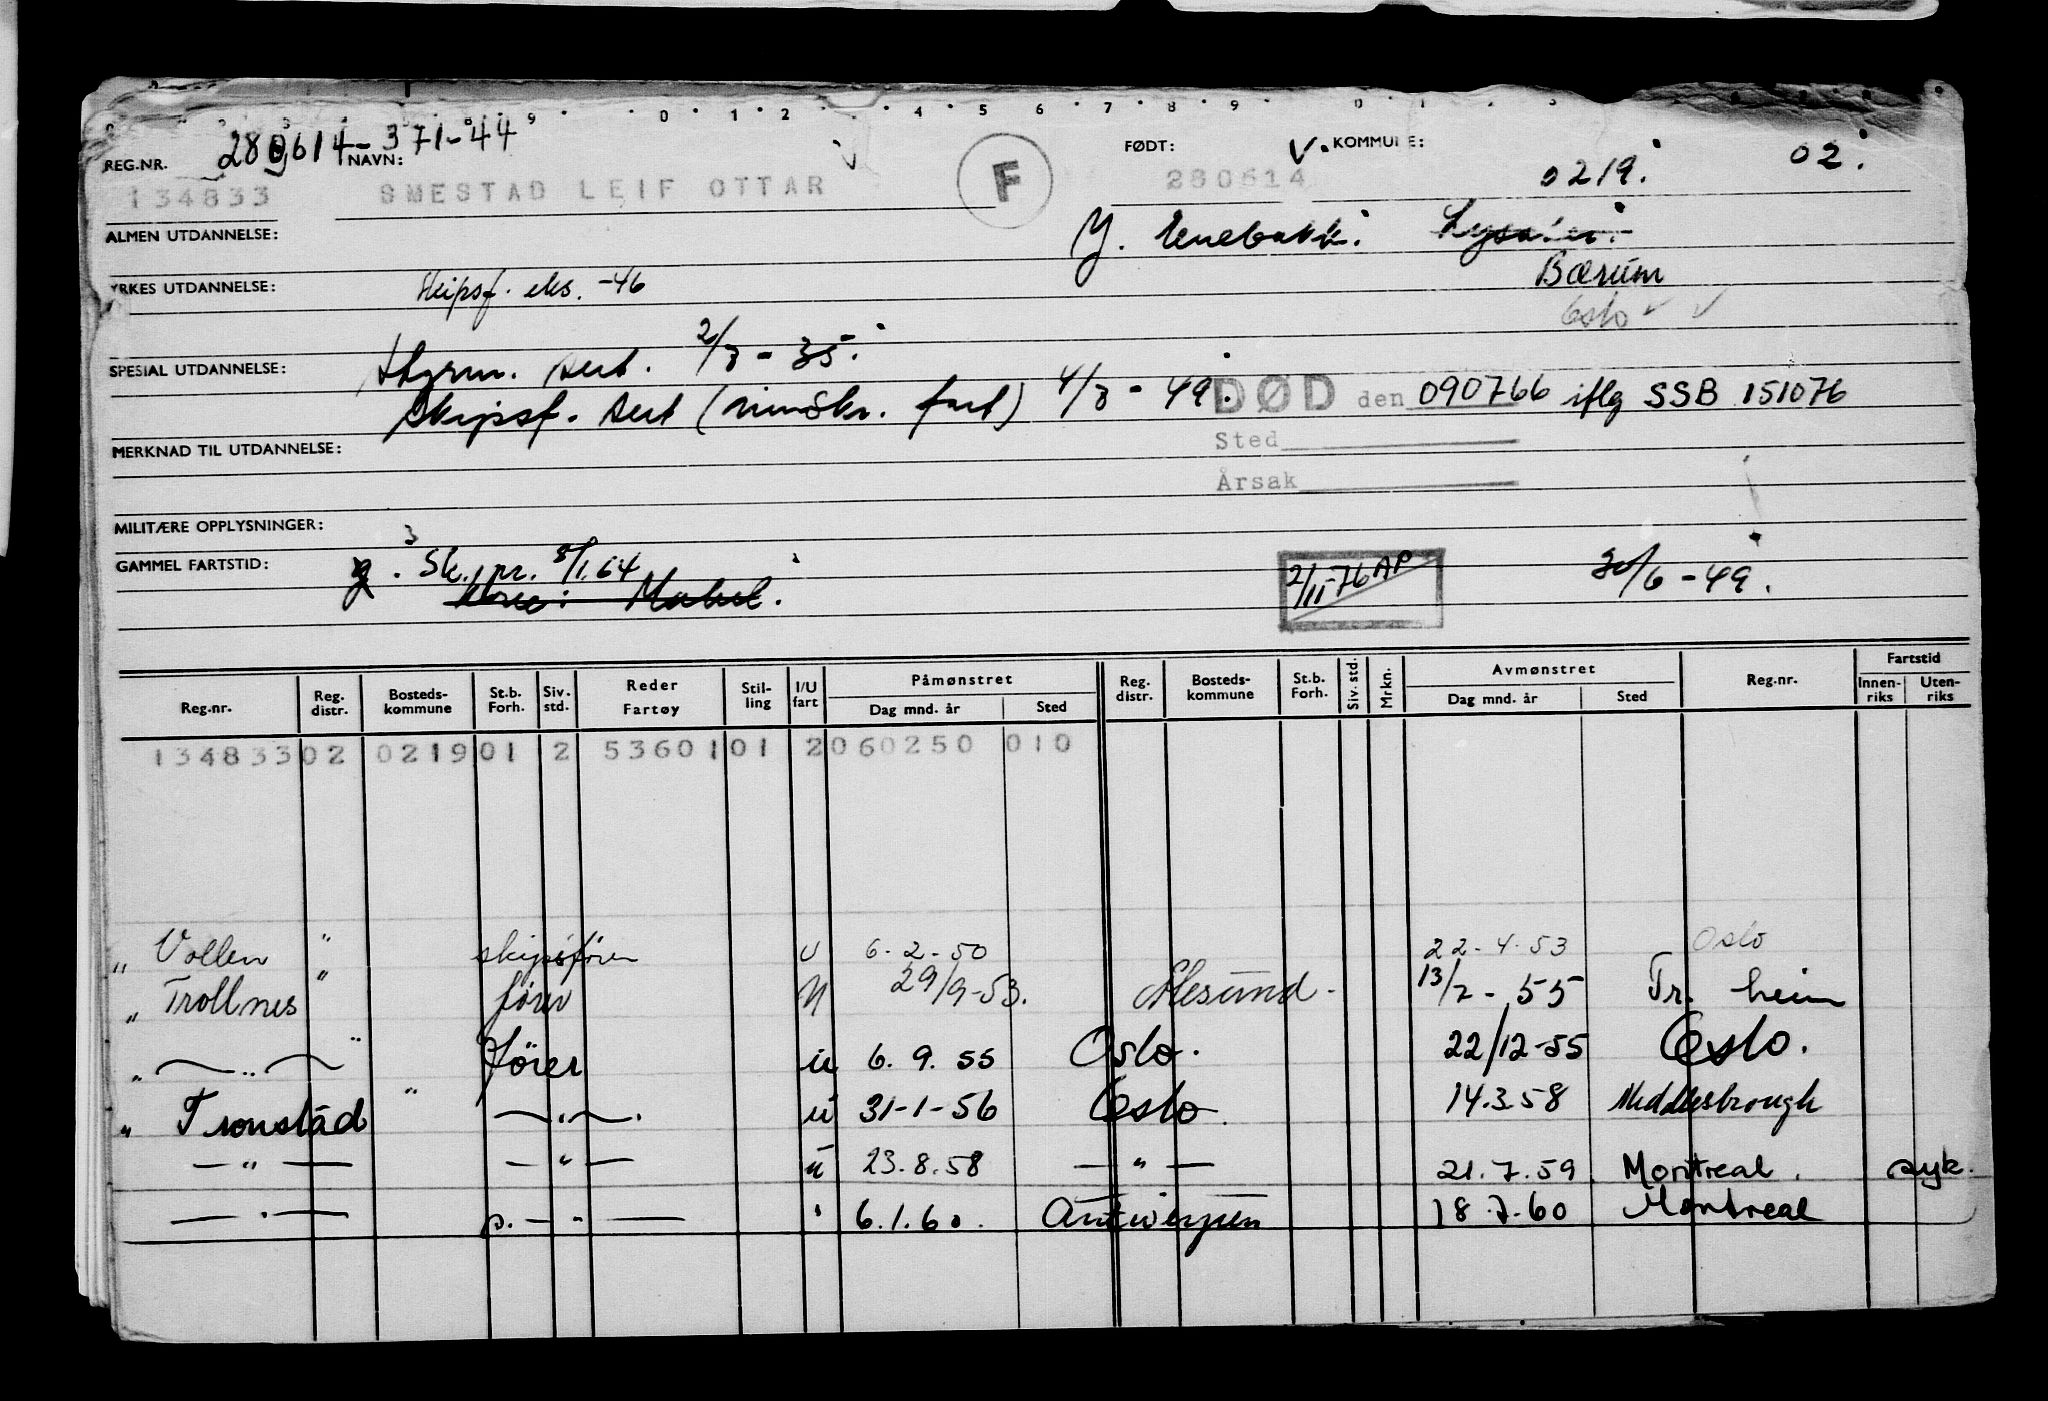 0 1 2 4 5 6 7 8 9 0 1
280614-371-44
REG.NR. NAVN: FØDT: V. KOMMUNE: 0219. 02.
134833 SMESTAD LEIF OTTAR F 280614
ALMEN UTDANNELSE: Y. Enebakk. Lysaker.
YRKES UTDANNELSE: Skipsf. eks. -46 Bærum
Oslo
SPESIAL UTDANNELSE: Styrm. sert. 2/8 - 35.
Skipsf. sert (innskr. fart) 4/8 - 49. DØD den 090766 iflg SSB 151076
MERKNAD TIL UTDANNELSE: Sted
Årsak
MILITÆRE OPPLYSNINGER:
GAMMEL FARTSTID: 3 Sk. pr. 8/1.64 2/11-76 AP 30/6 - 49.
Fartstid
Reg.nr. Reg. distr. Bosteds- kommune St.b. Forh. Siv. std. Reder Fartøy Stil- ling I/U fart Påmønstret Dag mnd. år Sted Reg. distr. Bosteds- kommune St.b. Forh. Siv. std. Mrkn. Avmønstret Dag mnd. år Sted Reg.nr. Innen- riks Uten- riks
134833 02 0219 01 2 53601 01 2 060250 010
„ Vollen " skipsfører u 6-2-50 22-4-53 Oslo
„ Trollnes " fører u 29/9-53. Ålesund. 13/2-55 Tr.heim
„ — " — " fører u 6.9.55 Oslo. 22/12-55 Oslo.
„ Tronstad " — " — u 31-1-56 Oslo. 14.3.58 Middlesbrough
— " — — " — u 23.8.58 — " — 21.7.59 Montreal. syk.
— " — s. — " — " 6.1.60. Antwerpen 18.7.60 Montreal